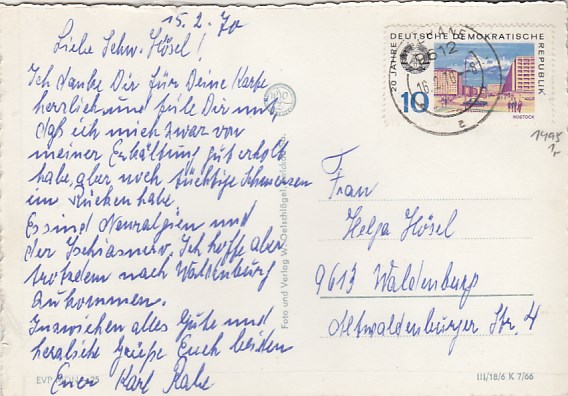 15.2.70
Liebe Schw. Hösel!
Ich danke Dir für Deine Karte
herzlich und teile Dir mit,
daß ich mich zwar von
meiner Erkältung gut erholt
habe, aber noch tüchtige Schmerzen
im Rücken habe.
Es sind Neuralgien und
der Ischiasnerv. Ich hoffe aber
trotzdem nach Waldenburg
zukommen.
Inzwischen alles Gute und
herzliche Grüße Euch beiden
Euer Karl
EVP
25
Foto und Verlag W. Oelschlägel
20 JAHRE DEUTSCHE DEMOKRATISCHE REPUBLIK
10
ROSTOCK
9612
16.
1495
1,-
Frau
Helga Hösel
9613 Waldenburg
Altwaldenburger Str. 4
III/18/6 K 7/66